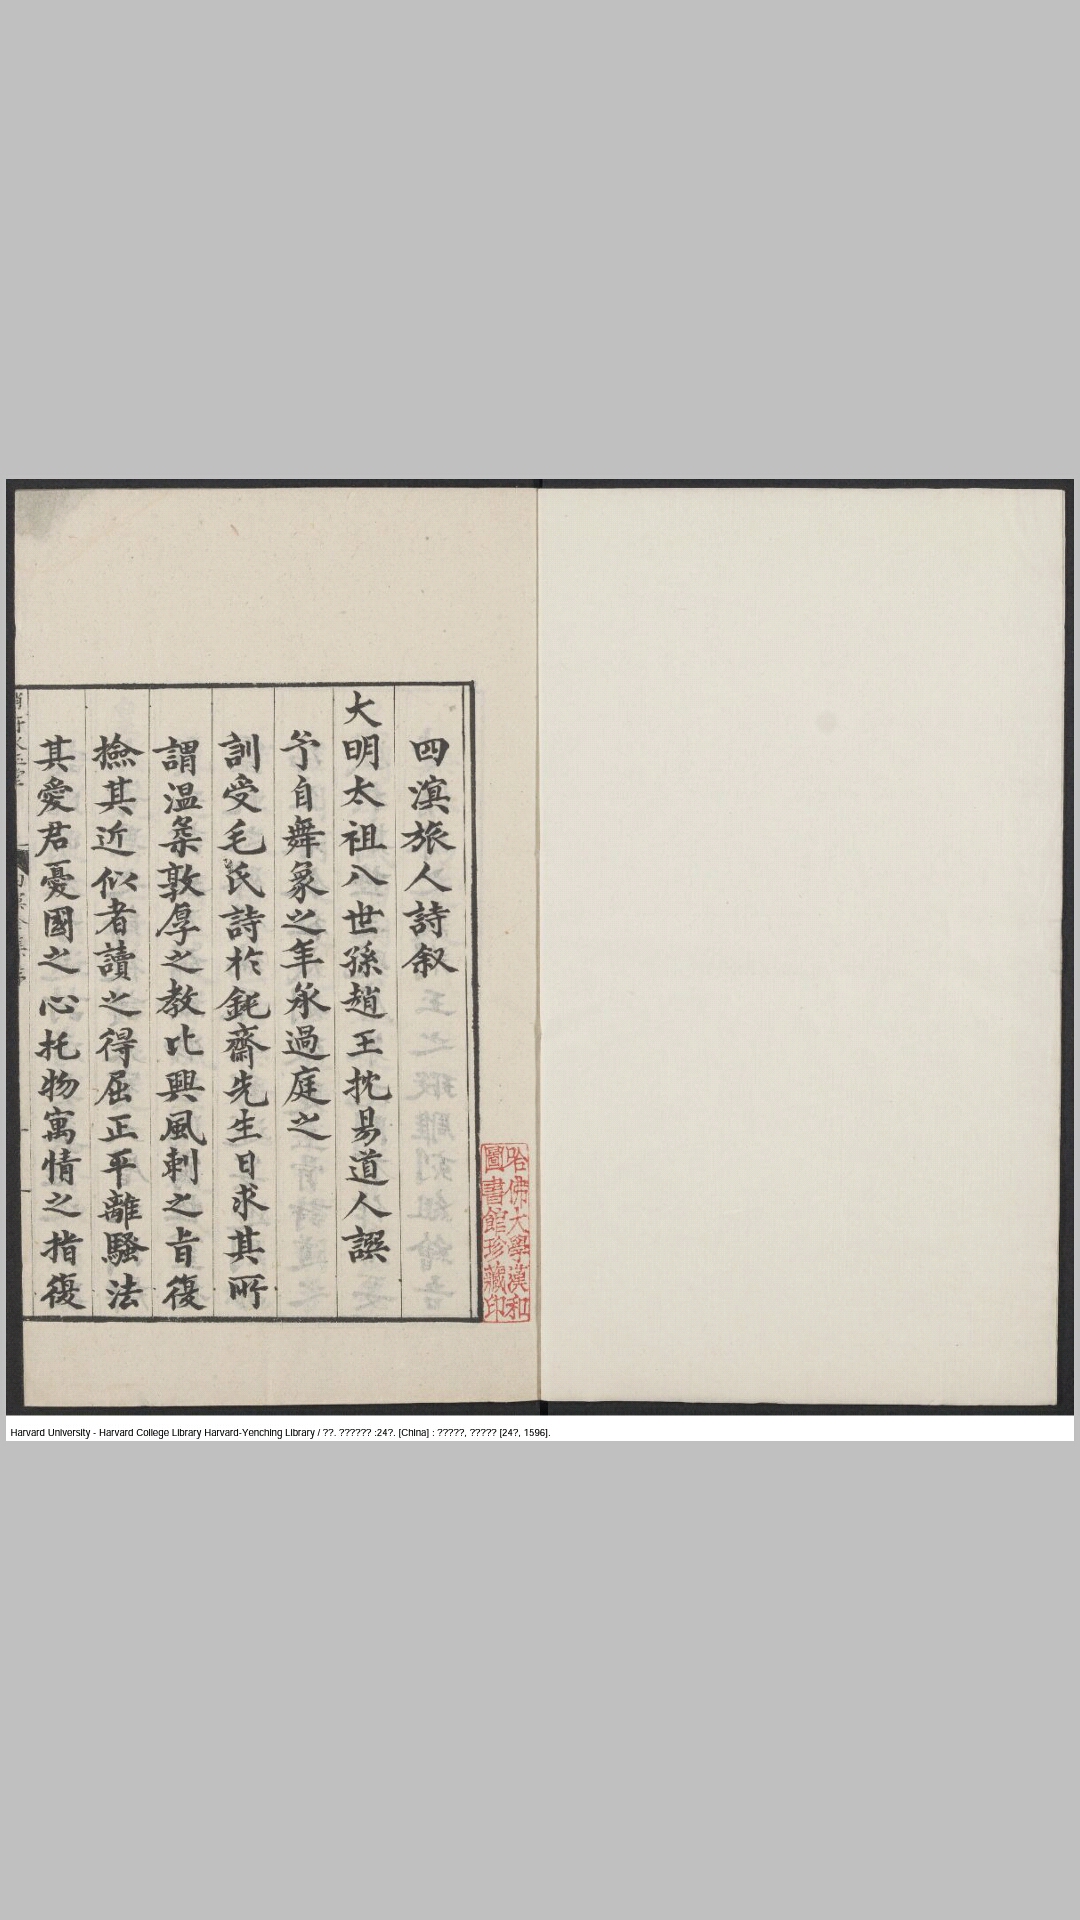 四溟旅人詩叙
大明太祖八世孫趙王枕易道人譔
予自舞象之年承過庭之
訓受毛氏詩於鈍齋先生日求其所
謂温柔敦厚之教比興風刺之旨復
撿其近似者讀之得屈正平離騷法
其愛君憂國之心托物寓情之指復
哈佛大學漢和
圖書館珍藏印
Harvard University - Harvard College Library Harvard-Yenching Library / ??. ?????? :24?. [China] : ?????, ????? [24?, 1596].